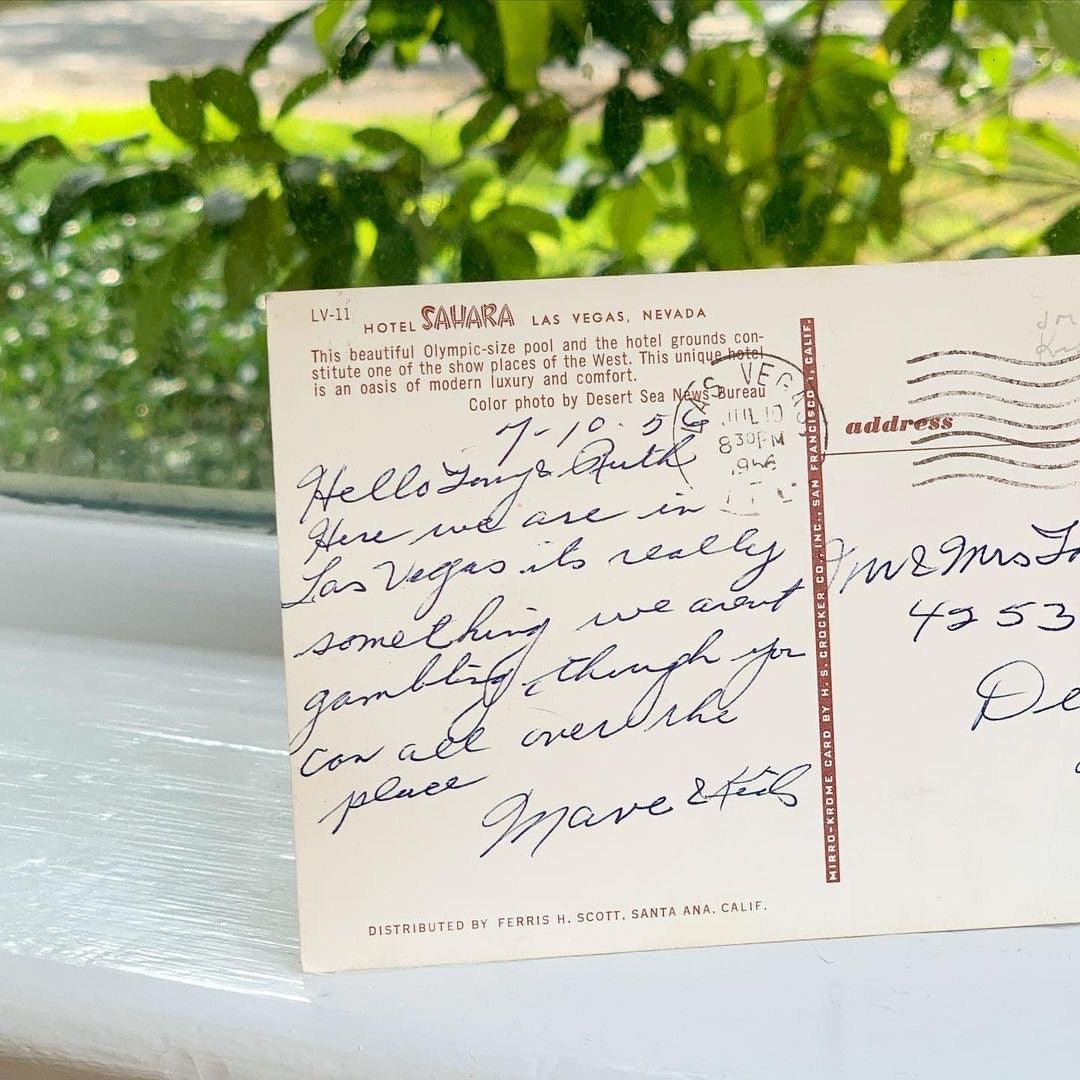 LV-11 HOTEL SAHARA LAS VEGAS, NEVADA
This beautiful Olympic-size pool and the hotel grounds con-
stitute one of the show places of the West. This unique hotel
is an oasis of modern luxury and comfort.
Color photo by Desert Sea News Bureau
7-10-56
Hello Tony & Ruth
Here we are in
Las Vegas its really
something we arent
gambling, though you
can all over the
place
Marve & Kids
DISTRIBUTED BY FERRIS H. SCOTT, SANTA ANA, CALIF.
MIRRO-KROME CARD BY H. S. CROCKER CO., INC., SAN FRANCISCO 1, CALIF.
LAS VEGAS,
JUL 10
830PM
address
Mr & Mrs
4253
De